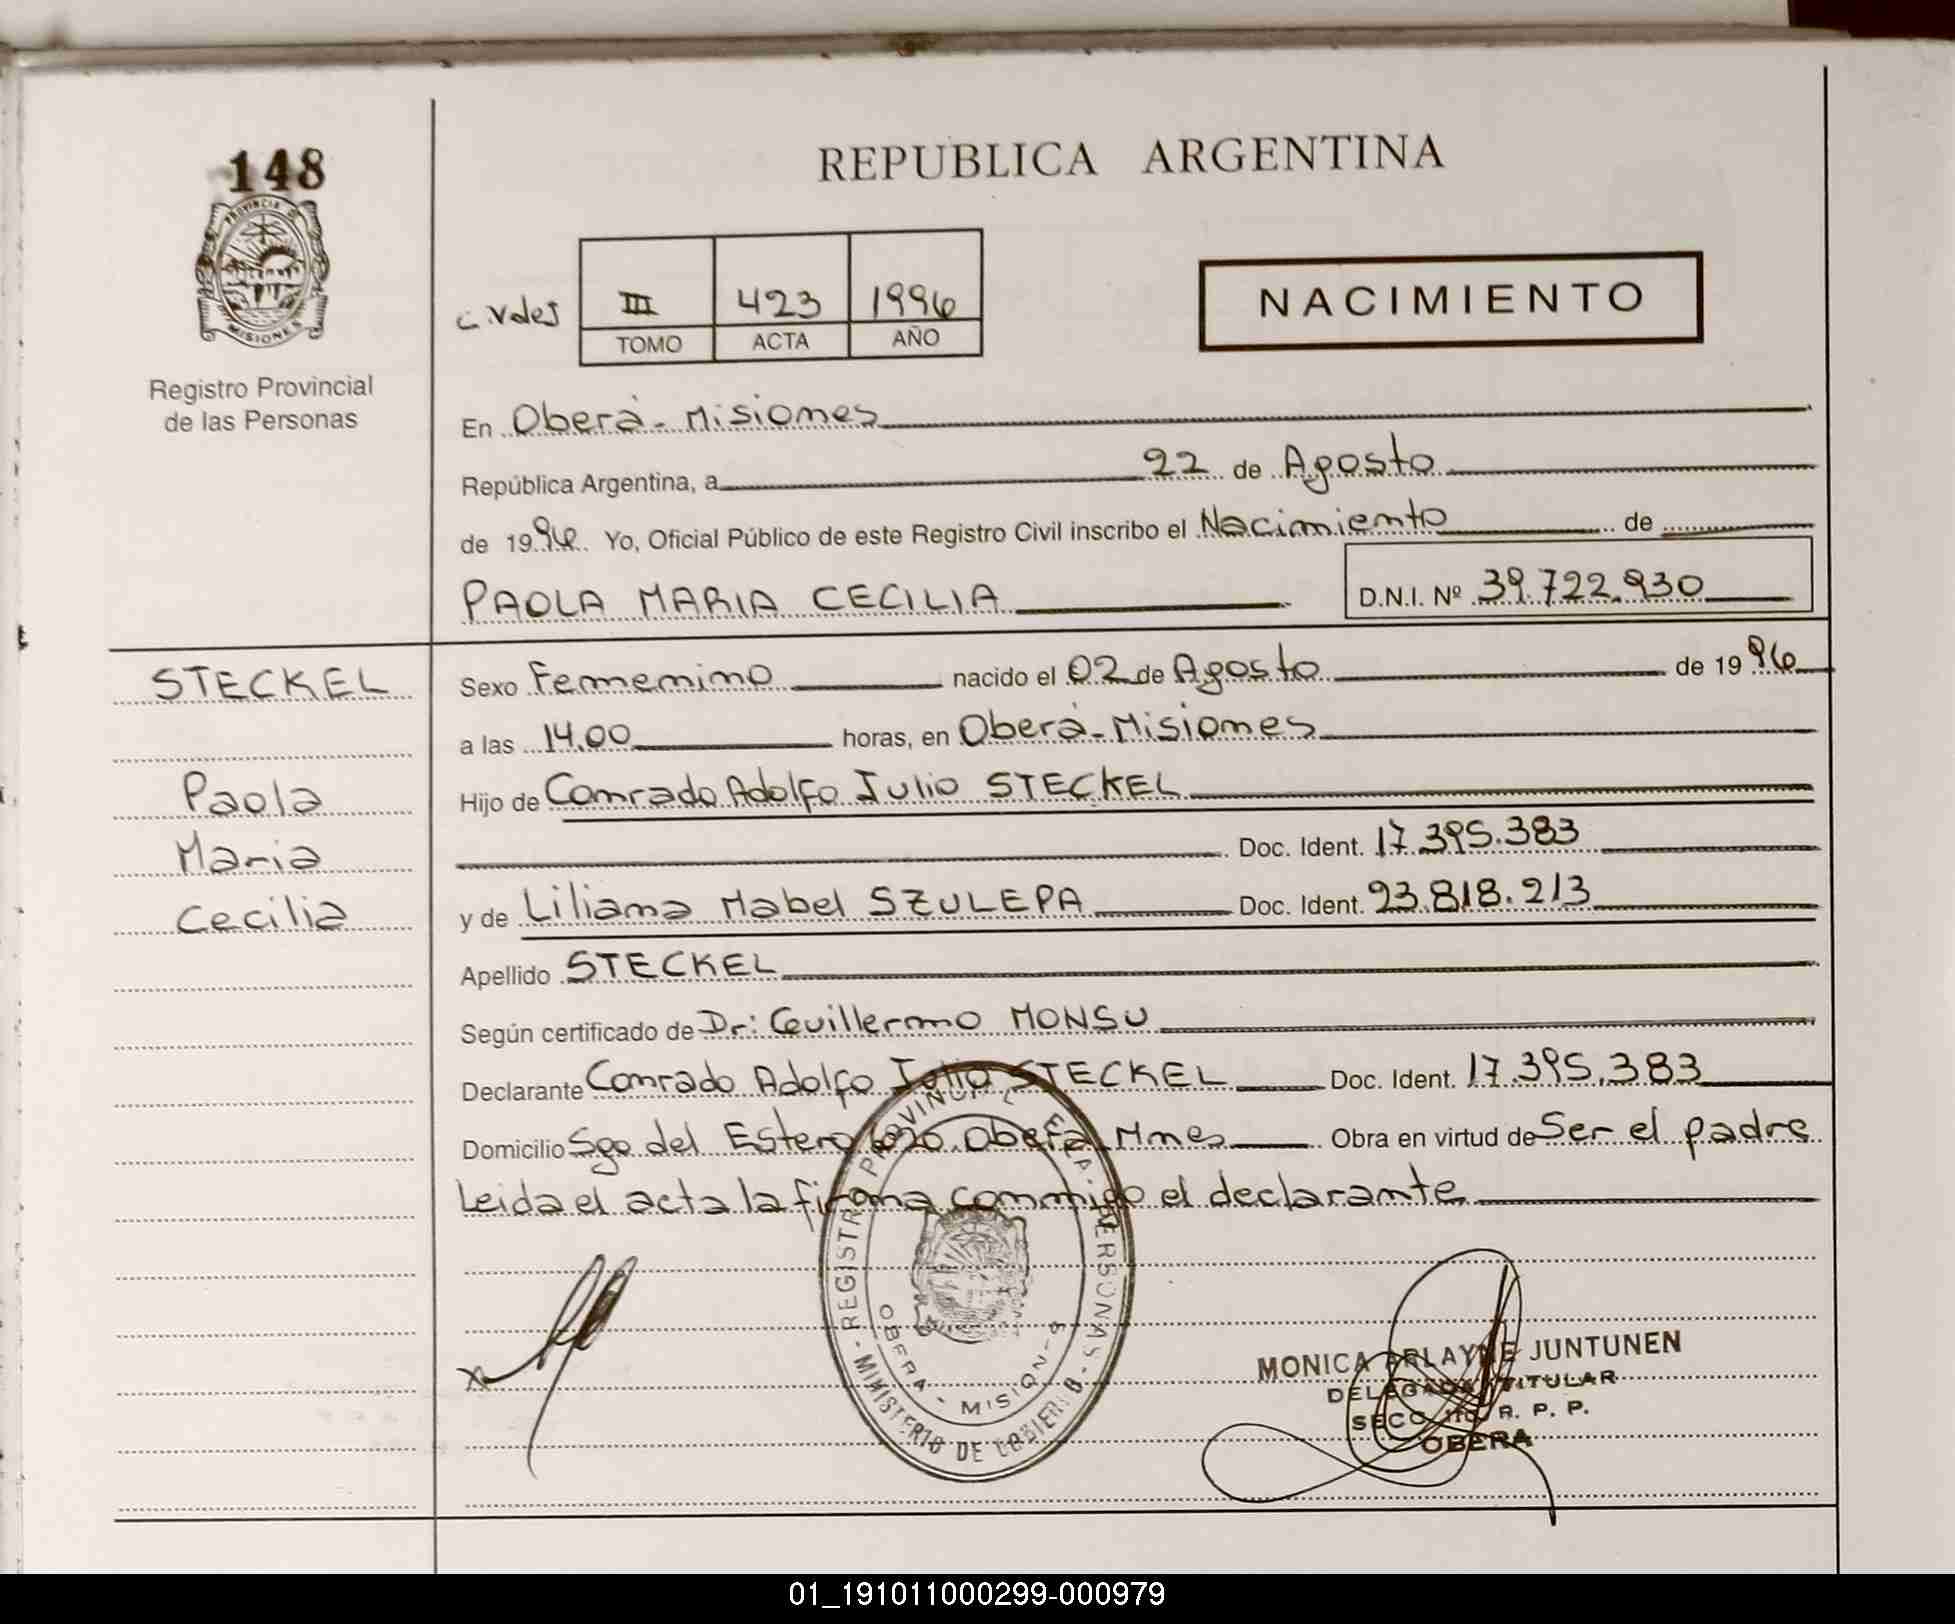 148
PROVINCIA DE
MISIONES
Registro Provincial
de las Personas
REPUBLICA ARGENTINA
III 423 1996
TOMO ACTA AÑO
NACIMIENTO
En Oberá - Misiones
República Argentina, a 22 de Agosto
de 1996 Yo, Oficial Público de este Registro Civil inscribo el Nacimiento de
PAOLA MARIA CECILIA D.N.I. Nº 39.722.930
STECKEL
Paola
Maria
Cecilia
Sexo Femenino nacido el 02 de Agosto de 1996
a las 14.00 horas, en Oberá - Misiones
Hijo de Conrado Adolfo Julio STECKEL
Doc. Ident. 17.395.383
y de Liliana Mabel SZULEPA Doc. Ident. 23.818.213
Apellido STECKEL
Según certificado de Dr: Guillermo MONSU
Declarante Conrado Adolfo Julio STECKEL Doc. Ident. 17.395.383
Domicilio Sgo del Estero Oberá Mnes Obra en virtud de Ser el padre
Leida el acta la firma conmigo el declarante
REGISTRO PROVINCIAL PERSONAS
MINISTERIO DE GOBIERNO
OBERA - MISIONES
MONICA ARLAYNE JUNTUNEN
DELEGADA TITULAR
R. P. P.
OBERA
01_191011000299-000979